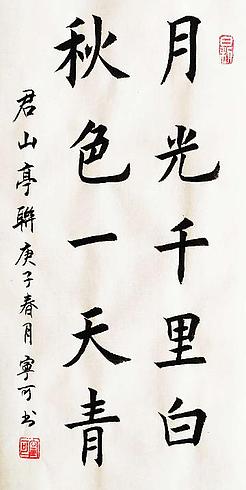 月光千里白
秋色一天青
君山亭聯庚子春月寧可书